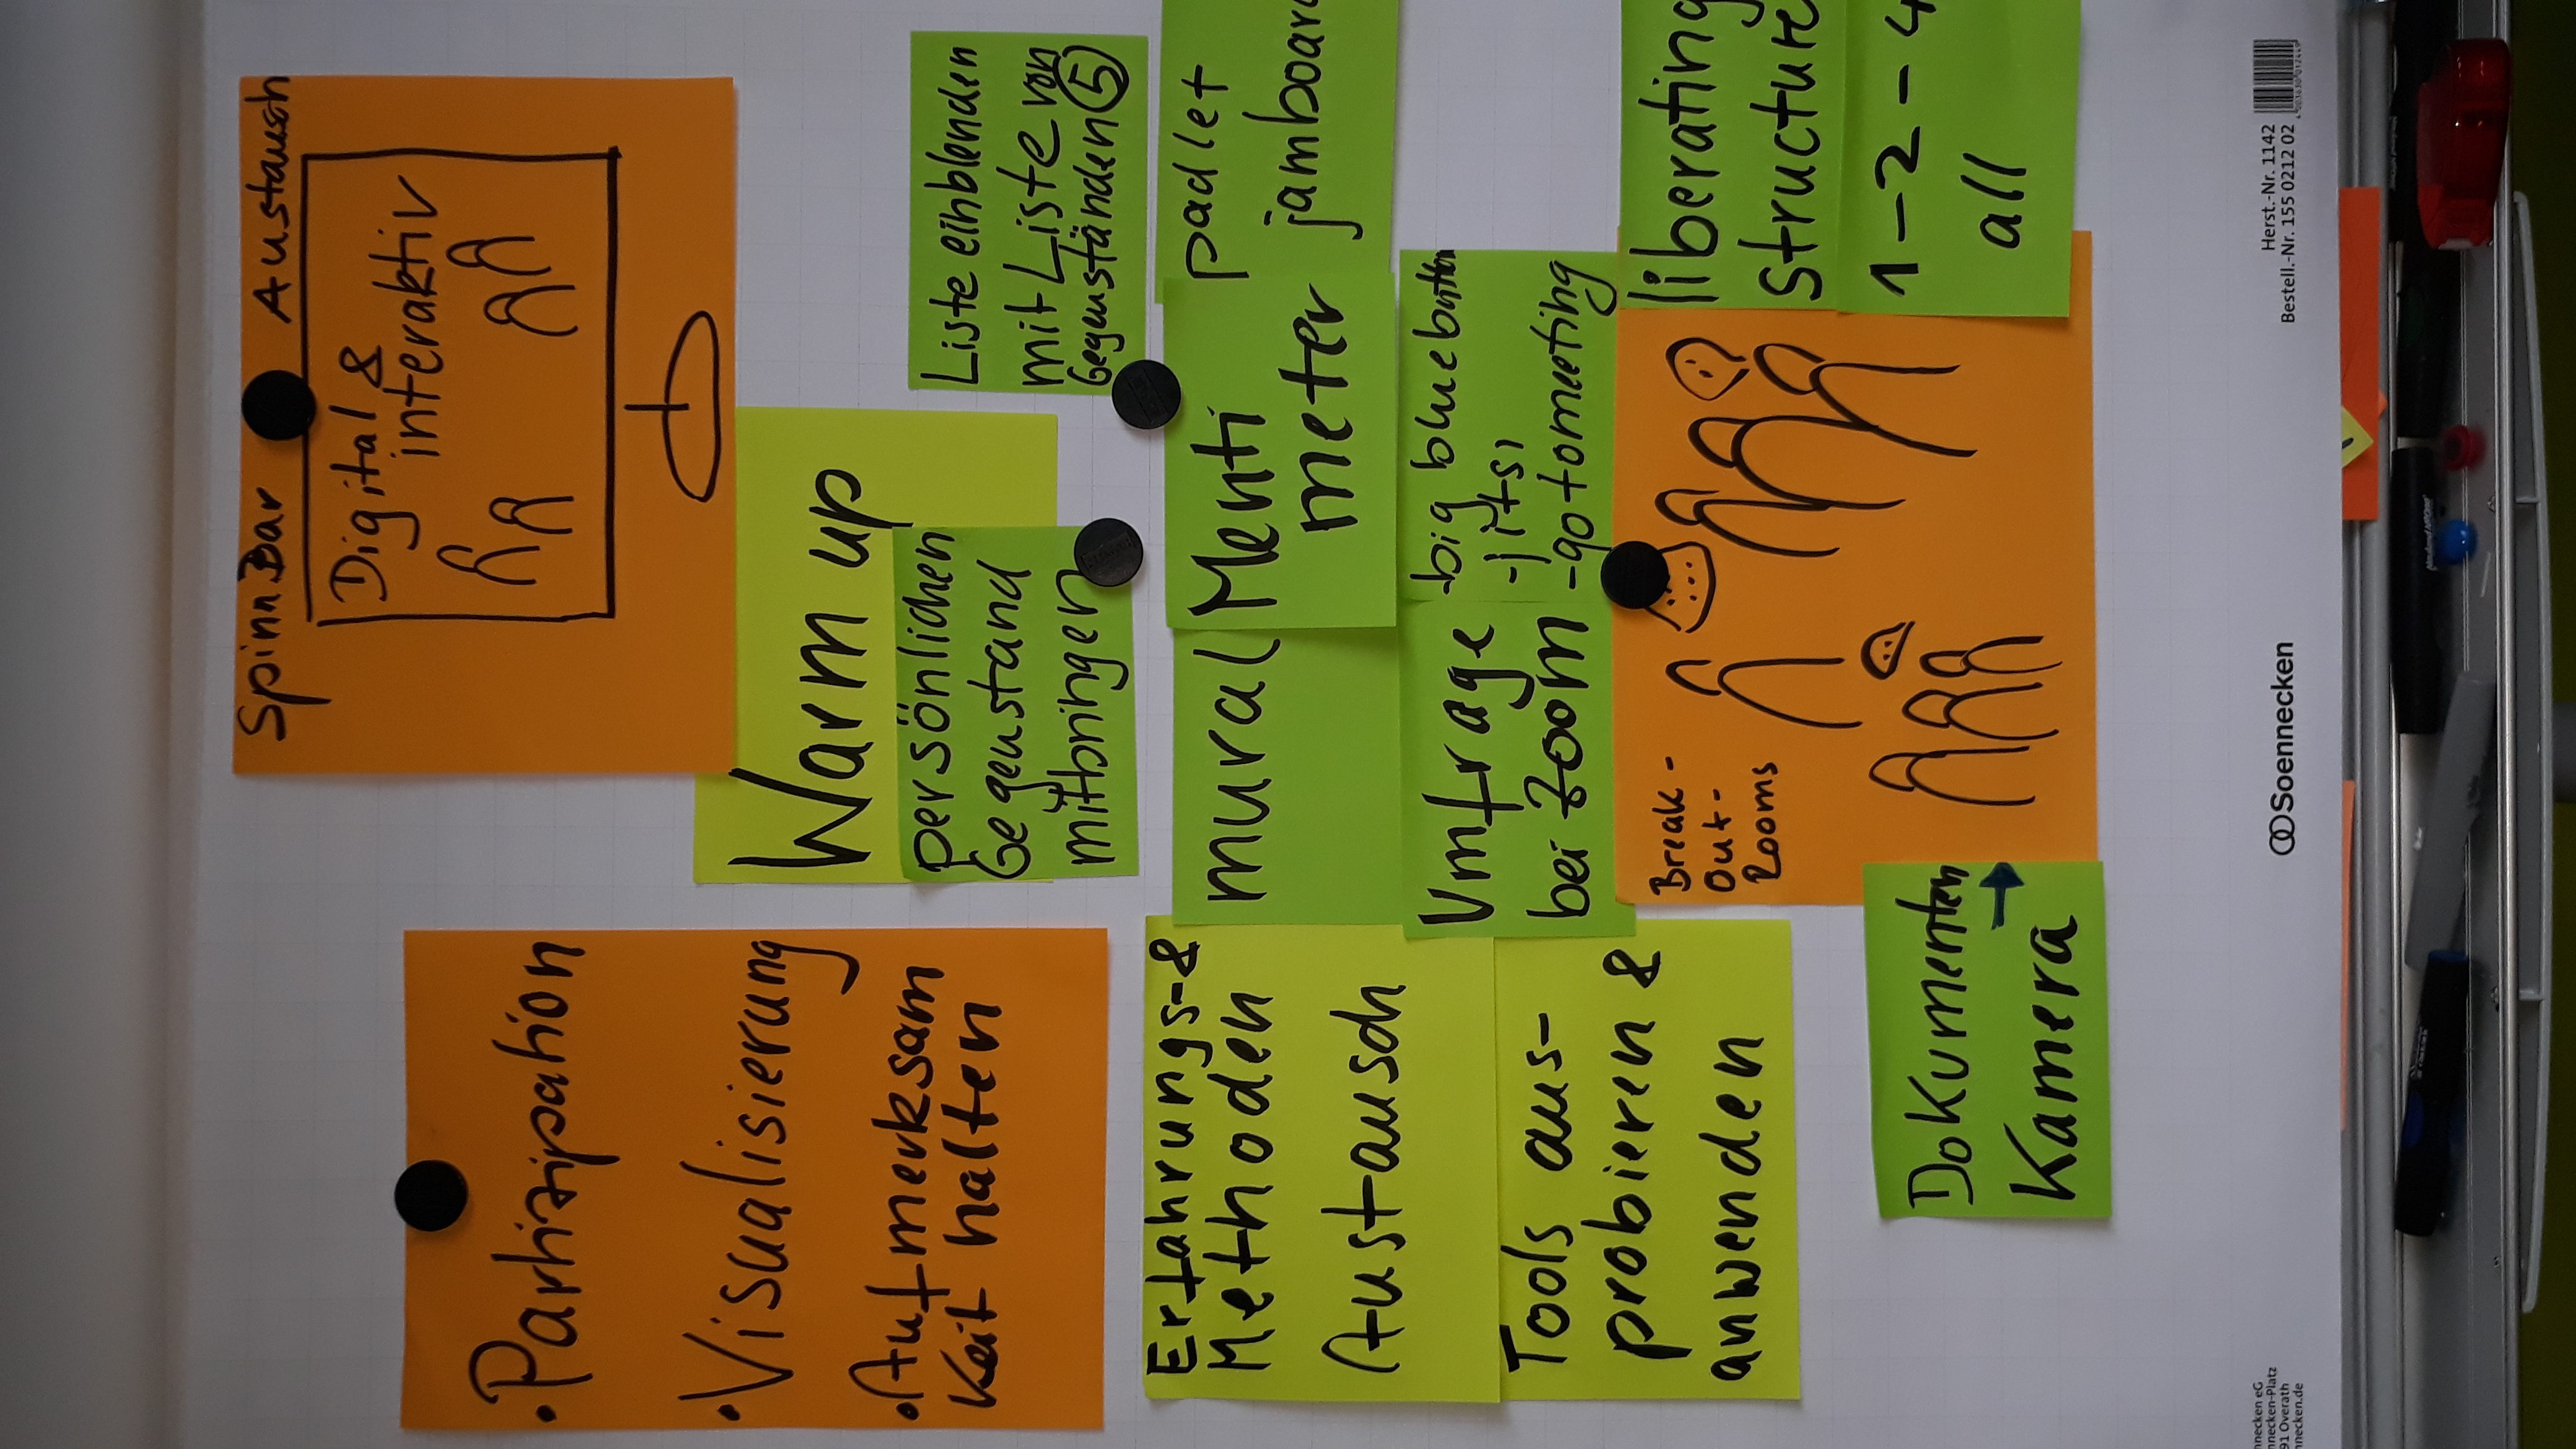 SpinnBar Austausch
Digital &
interaktiv
• Partizipation
• Visualisierung
• Aufmerksam
keit halten
Warm up
persönlichen
Gegenstand
mitbringen
Liste einblenden
mit Liste von
Gegenständen 5
Erfahrungs- &
Methoden
Austausch
Tools aus-
probieren &
anwenden
mural
Menti
meter
padlet
jamboard
Umfrage
bei Zoom
- big bluebutton
- jitsi
- gotomeeting
Break-
Out-
Rooms
liberating
structure
1 - 2 - 4
all
Dokumenten
Kamera
Soennecken
Herst.-Nr. 1142
Bestell.-Nr. 155 0212 02
nnecken eG
nnecken-Platz
91 Overath
nnecken.de